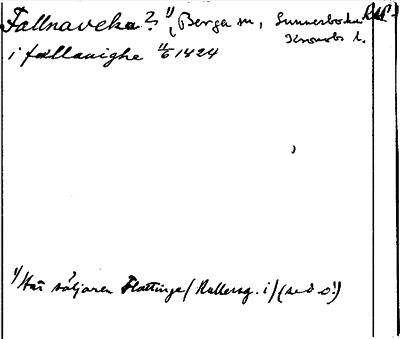 Fallnaveka? 1) Berga sn, Sunnerbo hd
Kronobs l.
i fallauighe 11/6 1424
1) Här säljaren Flattinge (Hallersg. i) (se d. o!)